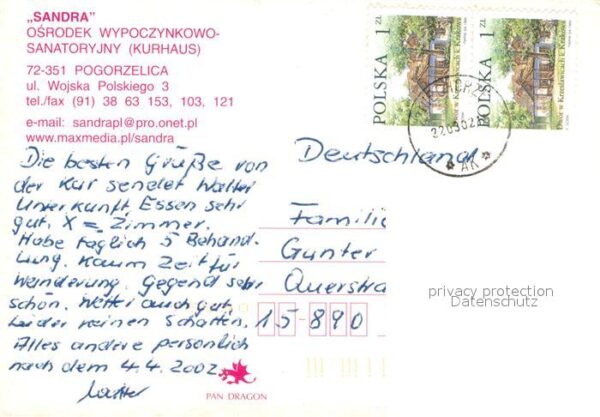 „SANDRA"
OŚRODEK WYPOCZYNKOWO-
SANATORYJNY (KURHAUS)
72-351 POGORZELICA
ul. Wojska Polskiego 3
tel./fax (91) 38 63 153, 103, 121
e-mail: sandrapl@pro.onet.pl
www.maxmedia.pl/sandra
Die besten Grüße von
der Kur sendet Walter
Unterkunft, Essen sehr
gut, X = Zimmer.
Habe täglich 5 Behand
lung. Kaum Zeit für
Wanderung. Gegend sehr
schön. Wetter auch gut,
leider keinen Schatten.
Alles andere persönlich
nach dem 4.4.2002
Walter
PAN DRAGON
POLSKA 1 ZŁ
Dwór w Krzesławicach k. Krakowa
POLSKA 1 ZŁ
Dwór w Krzesławicach k. Krakowa
AK
Deutschland
Famili
Günter
Auerstra
15-890
privacy protection
Datenschutz